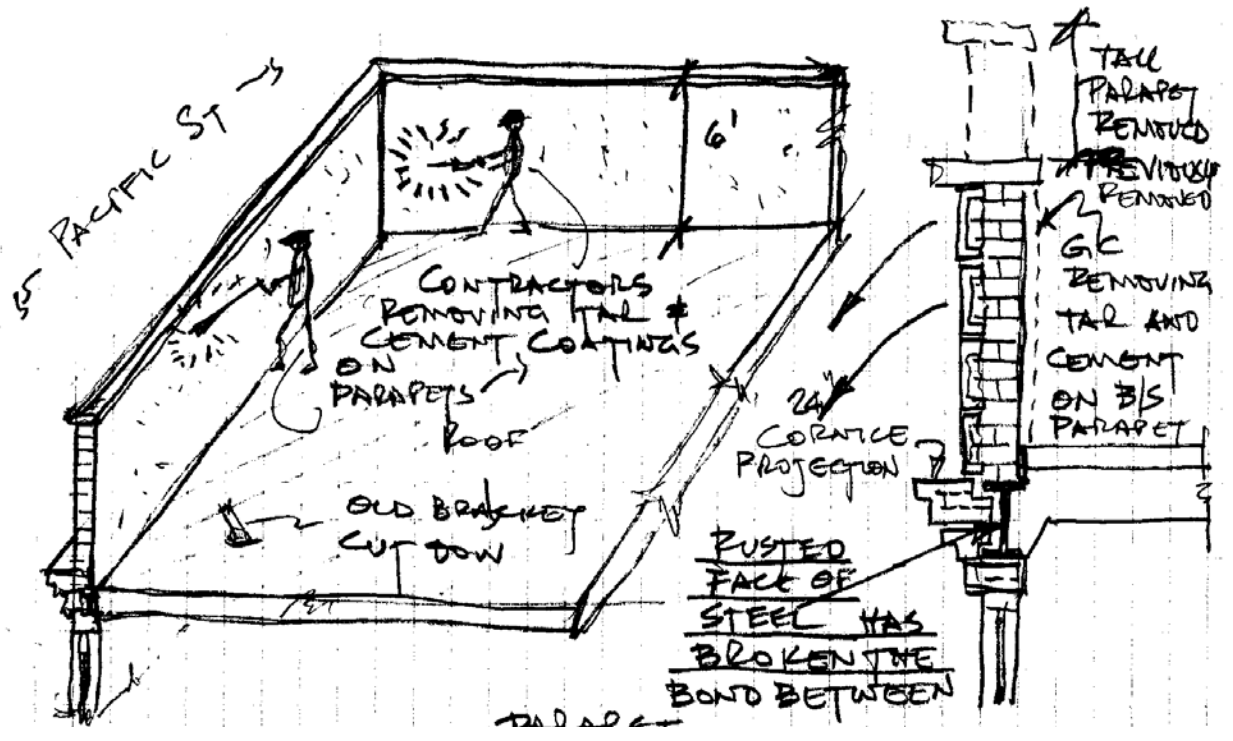 PACIFIC ST
6'
CONTRACTORS
REMOVING TAR &
CEMENT COATINGS
ON
PARAPETS
ROOF
OLD BRACKET
CUT DOW
TALL
PARAPET
REMOVED
PREVIOUSLY
REMOVED
GC
REMOVING
TAR AND
CEMENT
ON B/S
PARAPET
24"
CORNICE
PROJECTION
RUSTED
FACE OF
STEEL HAS
BROKEN THE
BOND BETWEEN
PARAPET